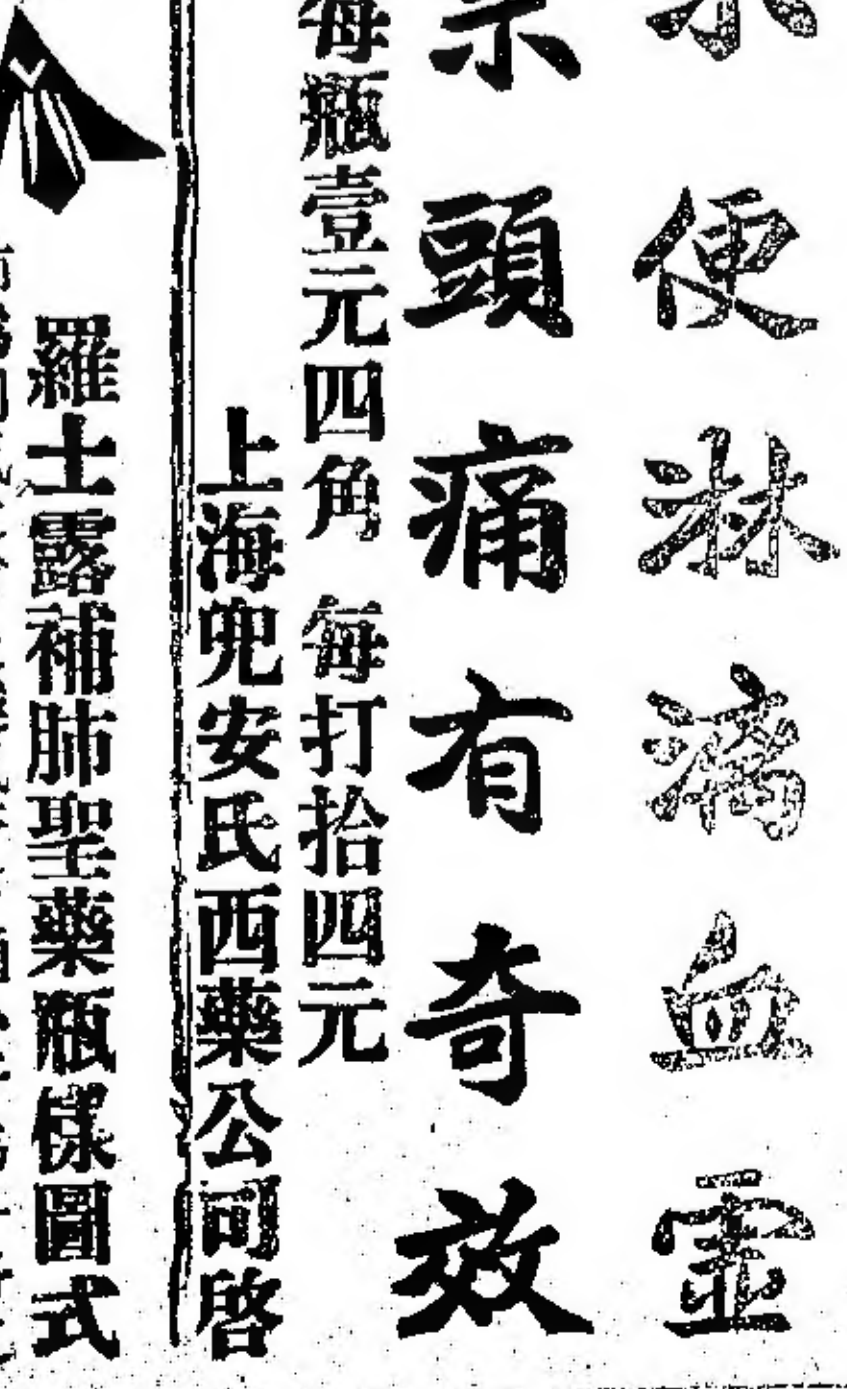 便淋漓血靈
頭痛有奇效
每瓶壹元四角 每打拾四元
上海兜安氏西藥公司啓
羅士露補肺聖藥瓶樣圖式